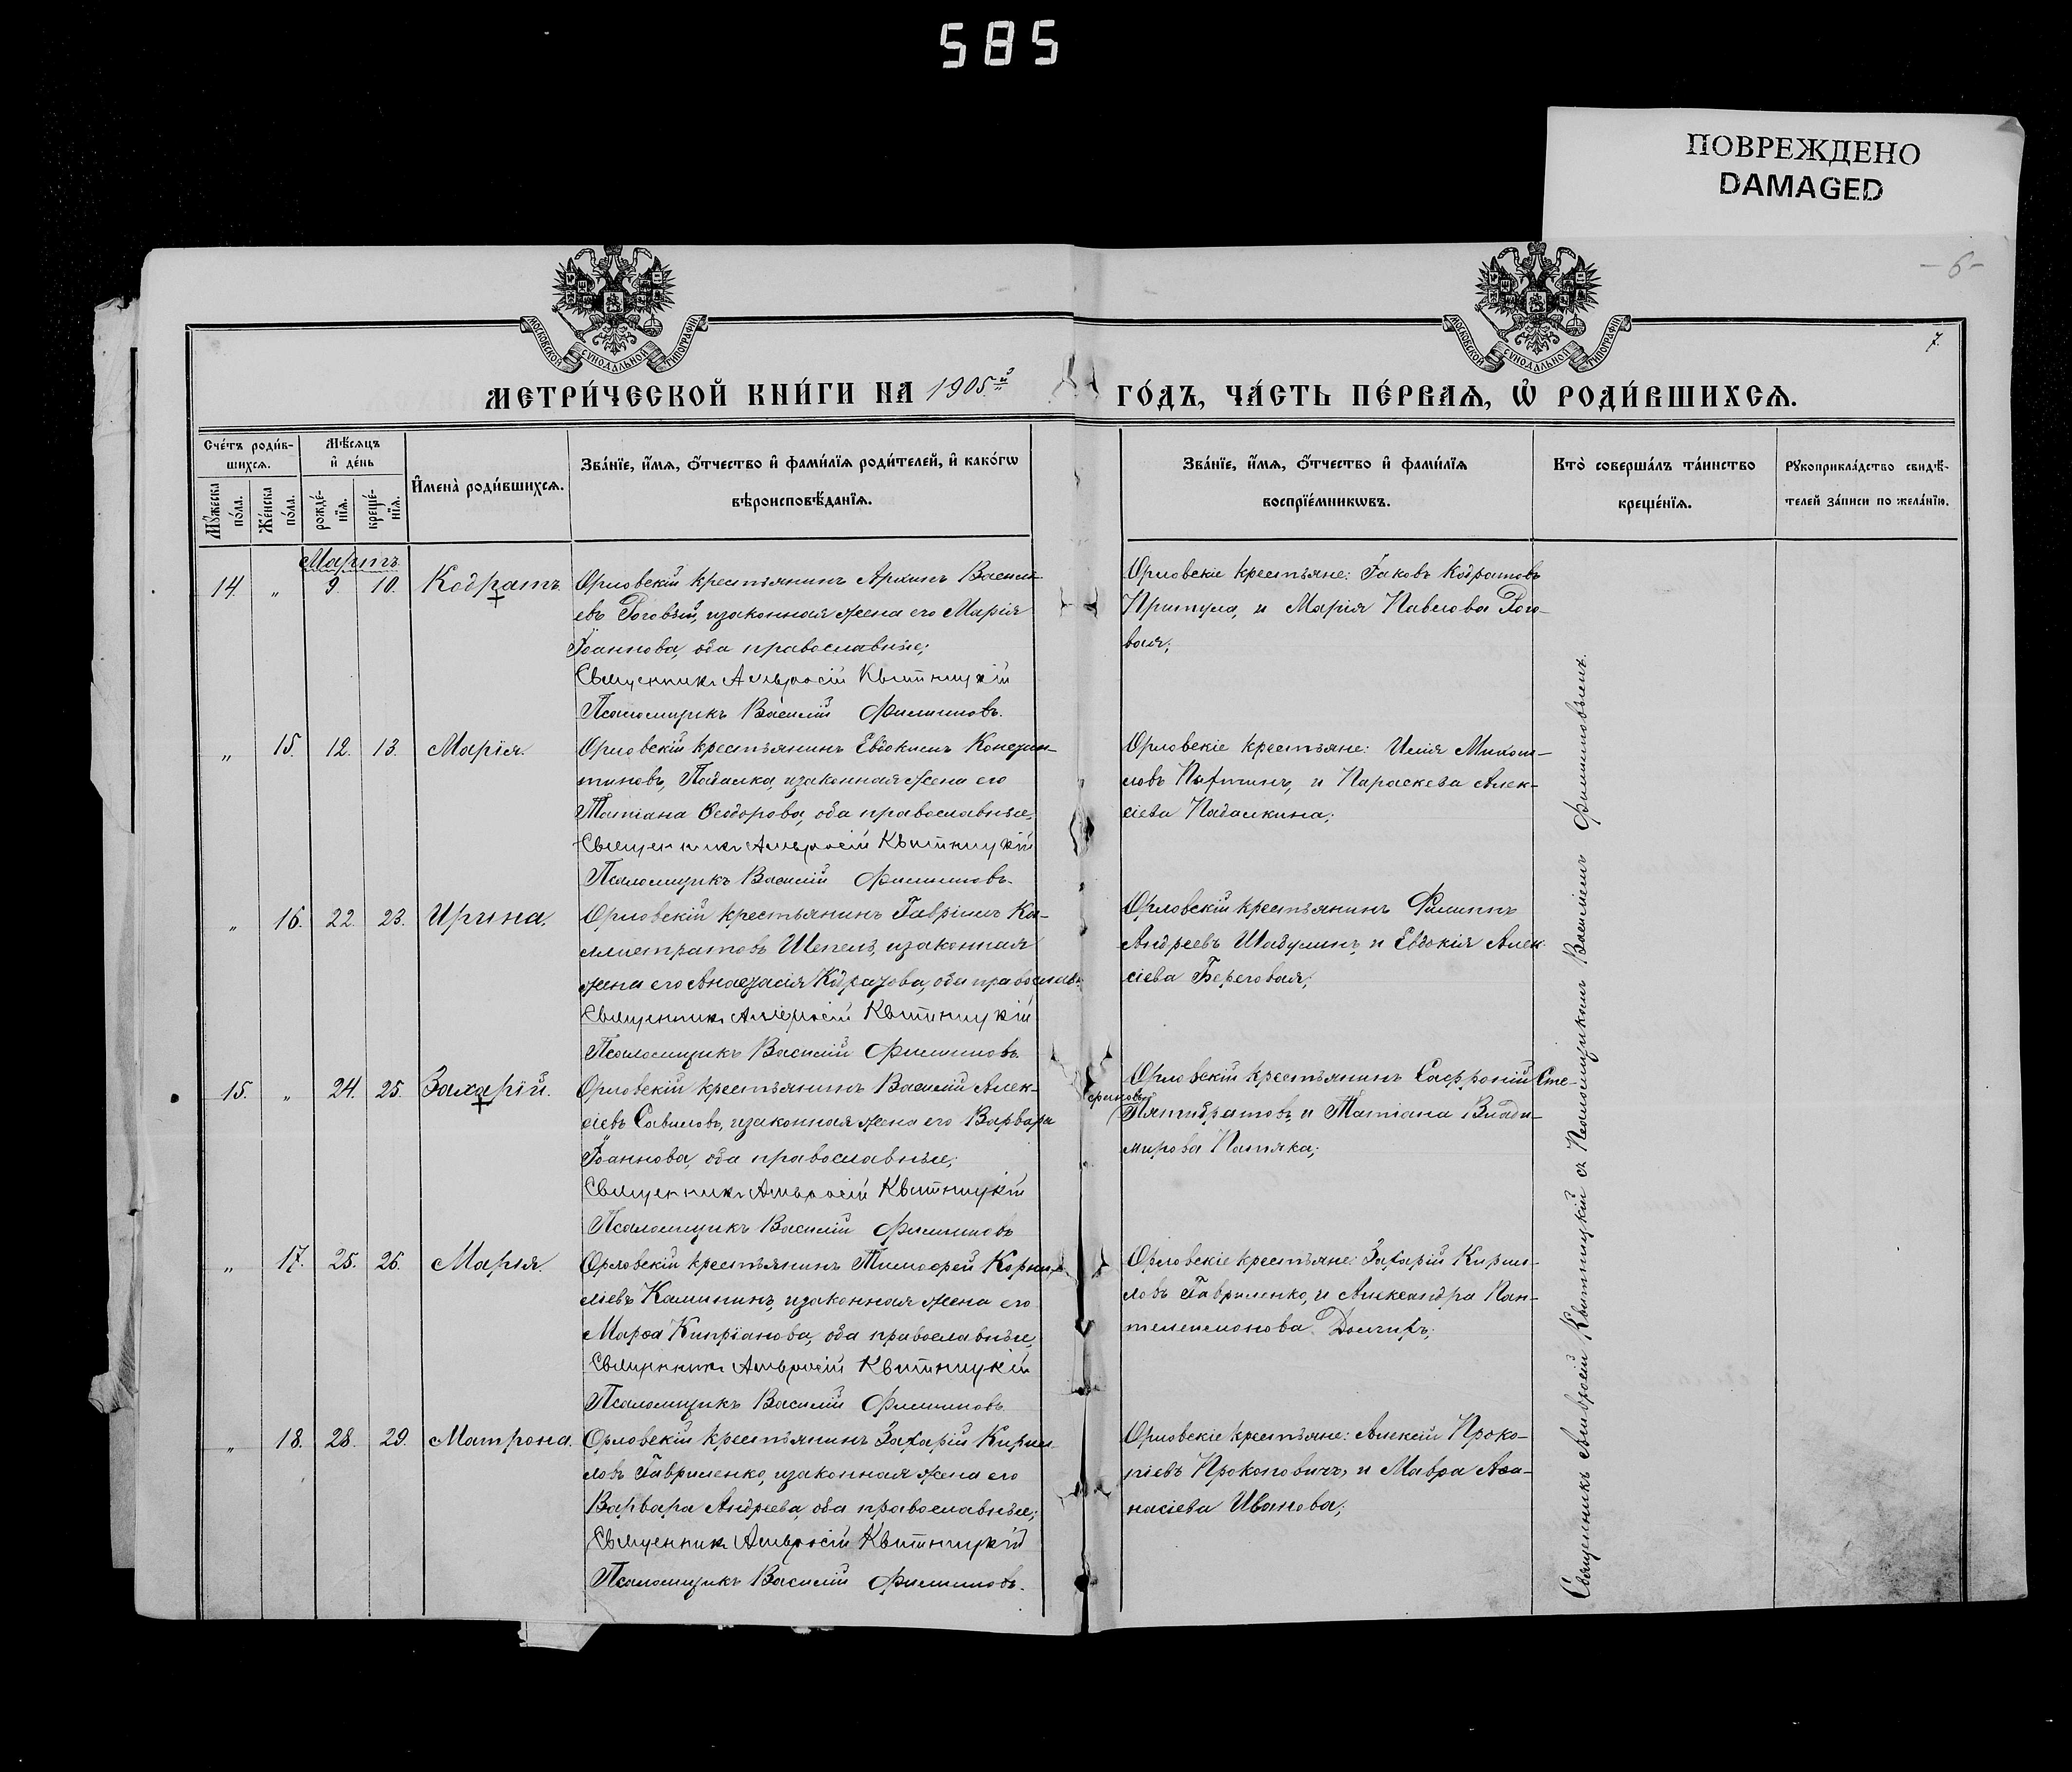 585
ПОВРЕЖДЕНО
DAMAGED
– 6 –
7.
МОСКОВСКОЙ СѴНОДАЛЬНОЙ ТИПОГРАФІИ
МОСКОВСКОЙ СѴНОДАЛЬНОЙ ТИПОГРАФІИ
МЕТРИ́ЧЕСКОЙ КНИ́ГИ НА 1905.й ГО́ДЪ, ЧА́СТЬ ПЕ́РВАѦ, Ѽ РОДИ́ВШИХСѦ.
Сче́тъ роди́в-
шихсѧ.
Мѣ́сѧцъ
и҆ де́нь
Мꙋ́жеска
по́ла.
Же́нска
по́ла.
рожде́-
нїѧ.
креще́-
нїѧ.
И҆мена̀ роди́вшихсѧ.
Зва́нїе, и҆́мѧ, ѻ҆́тчество и҆ фами́лїѧ роди́телей, и҆ како́гѡ
вѣроисповѣ́данїѧ.
Зва́нїе, и҆́мѧ, ѻ҆́тчество и҆ фами́лїѧ
воспрїе́мникѡвъ.
Кто̀ соверша́лъ та́инство
креще́нїѧ.
Рꙋкоприкла́дство свидѣ́-
телей за́писи по жела́нїю.
Мартъ
14. " 9. 10. Кодратъ
Орловскій крестьянинъ Архипъ Василь-
евъ Роговый, изаконная жена его Марія
Іоаннова, оба православные;
Священникъ Амвросій Квитницкій
Псаломщикъ Василій Филипповъ.
Орловскіе крестьяне: Іаковъ Кодратовъ
Притула, и Марія Павлова Рого-
вая;
" 15. 12. 13. Марія.
Орловскій крестьянинъ Евдокимъ Констан-
тиновъ, Падалка, изаконная жена его
Татіана Ѳеодорова, оба православные.
Священникъ Амвросій Квитницкій
Псаломщикъ Василій Филипповъ.
Орловскіе крестьяне: Илія Михаи-
ловъ и Параскева Алек-
сіева Падалкина;
" 16. 22. 23. Ирина.
Орловскій крестьянинъ Гавріилъ Ка-
ллистратовъ Шепель, изаконная
жена его Анастасія Кодратова, оба православн.
Священникъ Амвросій Квитницкій
Псаломщикъ Василій Филипповъ
Орловскій крестьянинъ Филиппъ
Андреевъ Шабулинъ, и Евдокія Алек-
сіева Береговая;
15. " 24. 25. Захарій.
Орловскій крестьянинъ Василій Алек-
сіевъ Савиловъ, изаконная жена его Варвара
Іоаннова, оба православные;
Священникъ Амвросій Квитницкій
Псаломщикъ Василій Филипповъ
Орловскій крестьянинъ Софроній Сте-
фановъ
Пятибратовъ, и Татіана Влади-
мирова Папяка;
" 17. 25. 26. Марія.
Орловскій крестьянинъ Тимофей Корни-
ліевъ Калининъ, изаконная жена его
Марѳа Кипріанова, оба православные,
Священникъ Амвросій Квитницкій
Псаломщикъ Василій Филипповъ
Орловскіе крестьяне: Захарій Кирил-
ловъ Гавриленко, и Александра Пан-
телеимонова Долгихъ;
" 18. 28. 29. Матрона.
Орловскій крестьянинъ Захарій Кирил-
ловъ Гавриленко, изаконная жена его
Варвара Андреева, оба православные;
Священникъ Амвросій Квитницкій
Псаломщикъ Василій Филипповъ.
Орловскіе крестьяне: Алексій Проко-
піевъ Прокоповичъ, и Мавра Аѳа-
насіева Иванова;
Священникъ Амвросій Квитницкій съ Псаломщикомъ Василіемъ Филипповымъ.